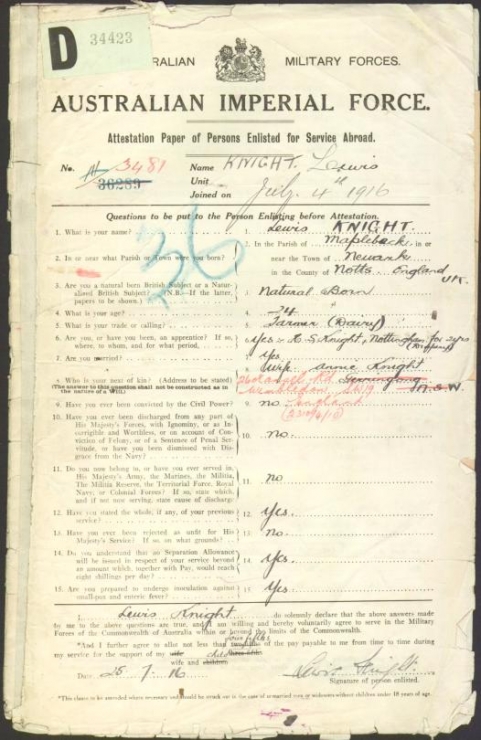 D 34423
AUSTRALIAN MILITARY FORCES.
AUSTRALIAN IMPERIAL FORCE.
Attestation Paper of Persons Enlisted for Service Abroad.
No. 3481 Name KNIGHT. Lewis
36289 Unit
Joined on July 4th 1916
36
Questions to be put to the Person Enlisting before Attestation.
1. What is your name? 1. Lewis KNIGHT.
2. In or near what Parish or Town were you born? 2. In the Parish of Maplebeck in or
near the Town of Newark
in the County of Notts. England UK.
3. Are you a natural born British Subject or a Natu-
ralized British Subject? (N.B.—If the latter,
papers to be shown) 3. Natural Born
4. What is your age? 4. 24
5. What is your trade or calling? 5. Farmer (Dairy)
6. Are you, or have you been, an apprentice? If so,
where, to whom, and for what period. 6. Yes - Knight, Nottingham for
7. Are you married? 7. Yes
8. Who is your next of kin? (Address to be stated) 8. Wife Annie Knight
(The answer to this question shall not be construed as in
the nature of a Will.) N.S.W.
9. Have you ever been convicted by the Civil Power? 9. no
10. Have you ever been discharged from any part of
His Majesty's Forces, with Ignominy, or as In-
corrigible and Worthless, or on account of Con-
viction of Felony, or of a Sentence of Penal Ser-
vitude, or have you been dismissed with Dis-
grace from the Navy? 10. no.
11. Do you now belong to, or have you ever served in,
His Majesty's Army, the Marines, the Militia,
The Militia Reserve, the Territorial Force, Royal
Navy, or Colonial Forces? If so, state which,
and if not now serving, state cause of discharge 11. no
12. Have you stated the whole, if any, of your previous
service? 12. Yes.
13. Have you ever been rejected as unfit for His
Majesty's Service? If so, on what grounds? 13. no.
14. Do you understand that no Separation Allowance
will be issued in respect of your service beyond
an amount which, together with Pay, would reach
eight shillings per day? 14. Yes.
15. Are you prepared to undergo inoculation against
small-pox and enteric fever? 15. Yes
I, Lewis Knight do solemnly declare that the above answers made
by me to the above questions are true, and I am willing and hereby voluntarily agree to serve in the Military
Forces of the Commonwealth of Australia within or beyond the limits of the Commonwealth.
*And I further agree to allot not less than of the pay payable to me from time to time during
my service for the support of my wife
wife and children
Date 25 7 16 Lewis Knight.
Signature of person enlisted.